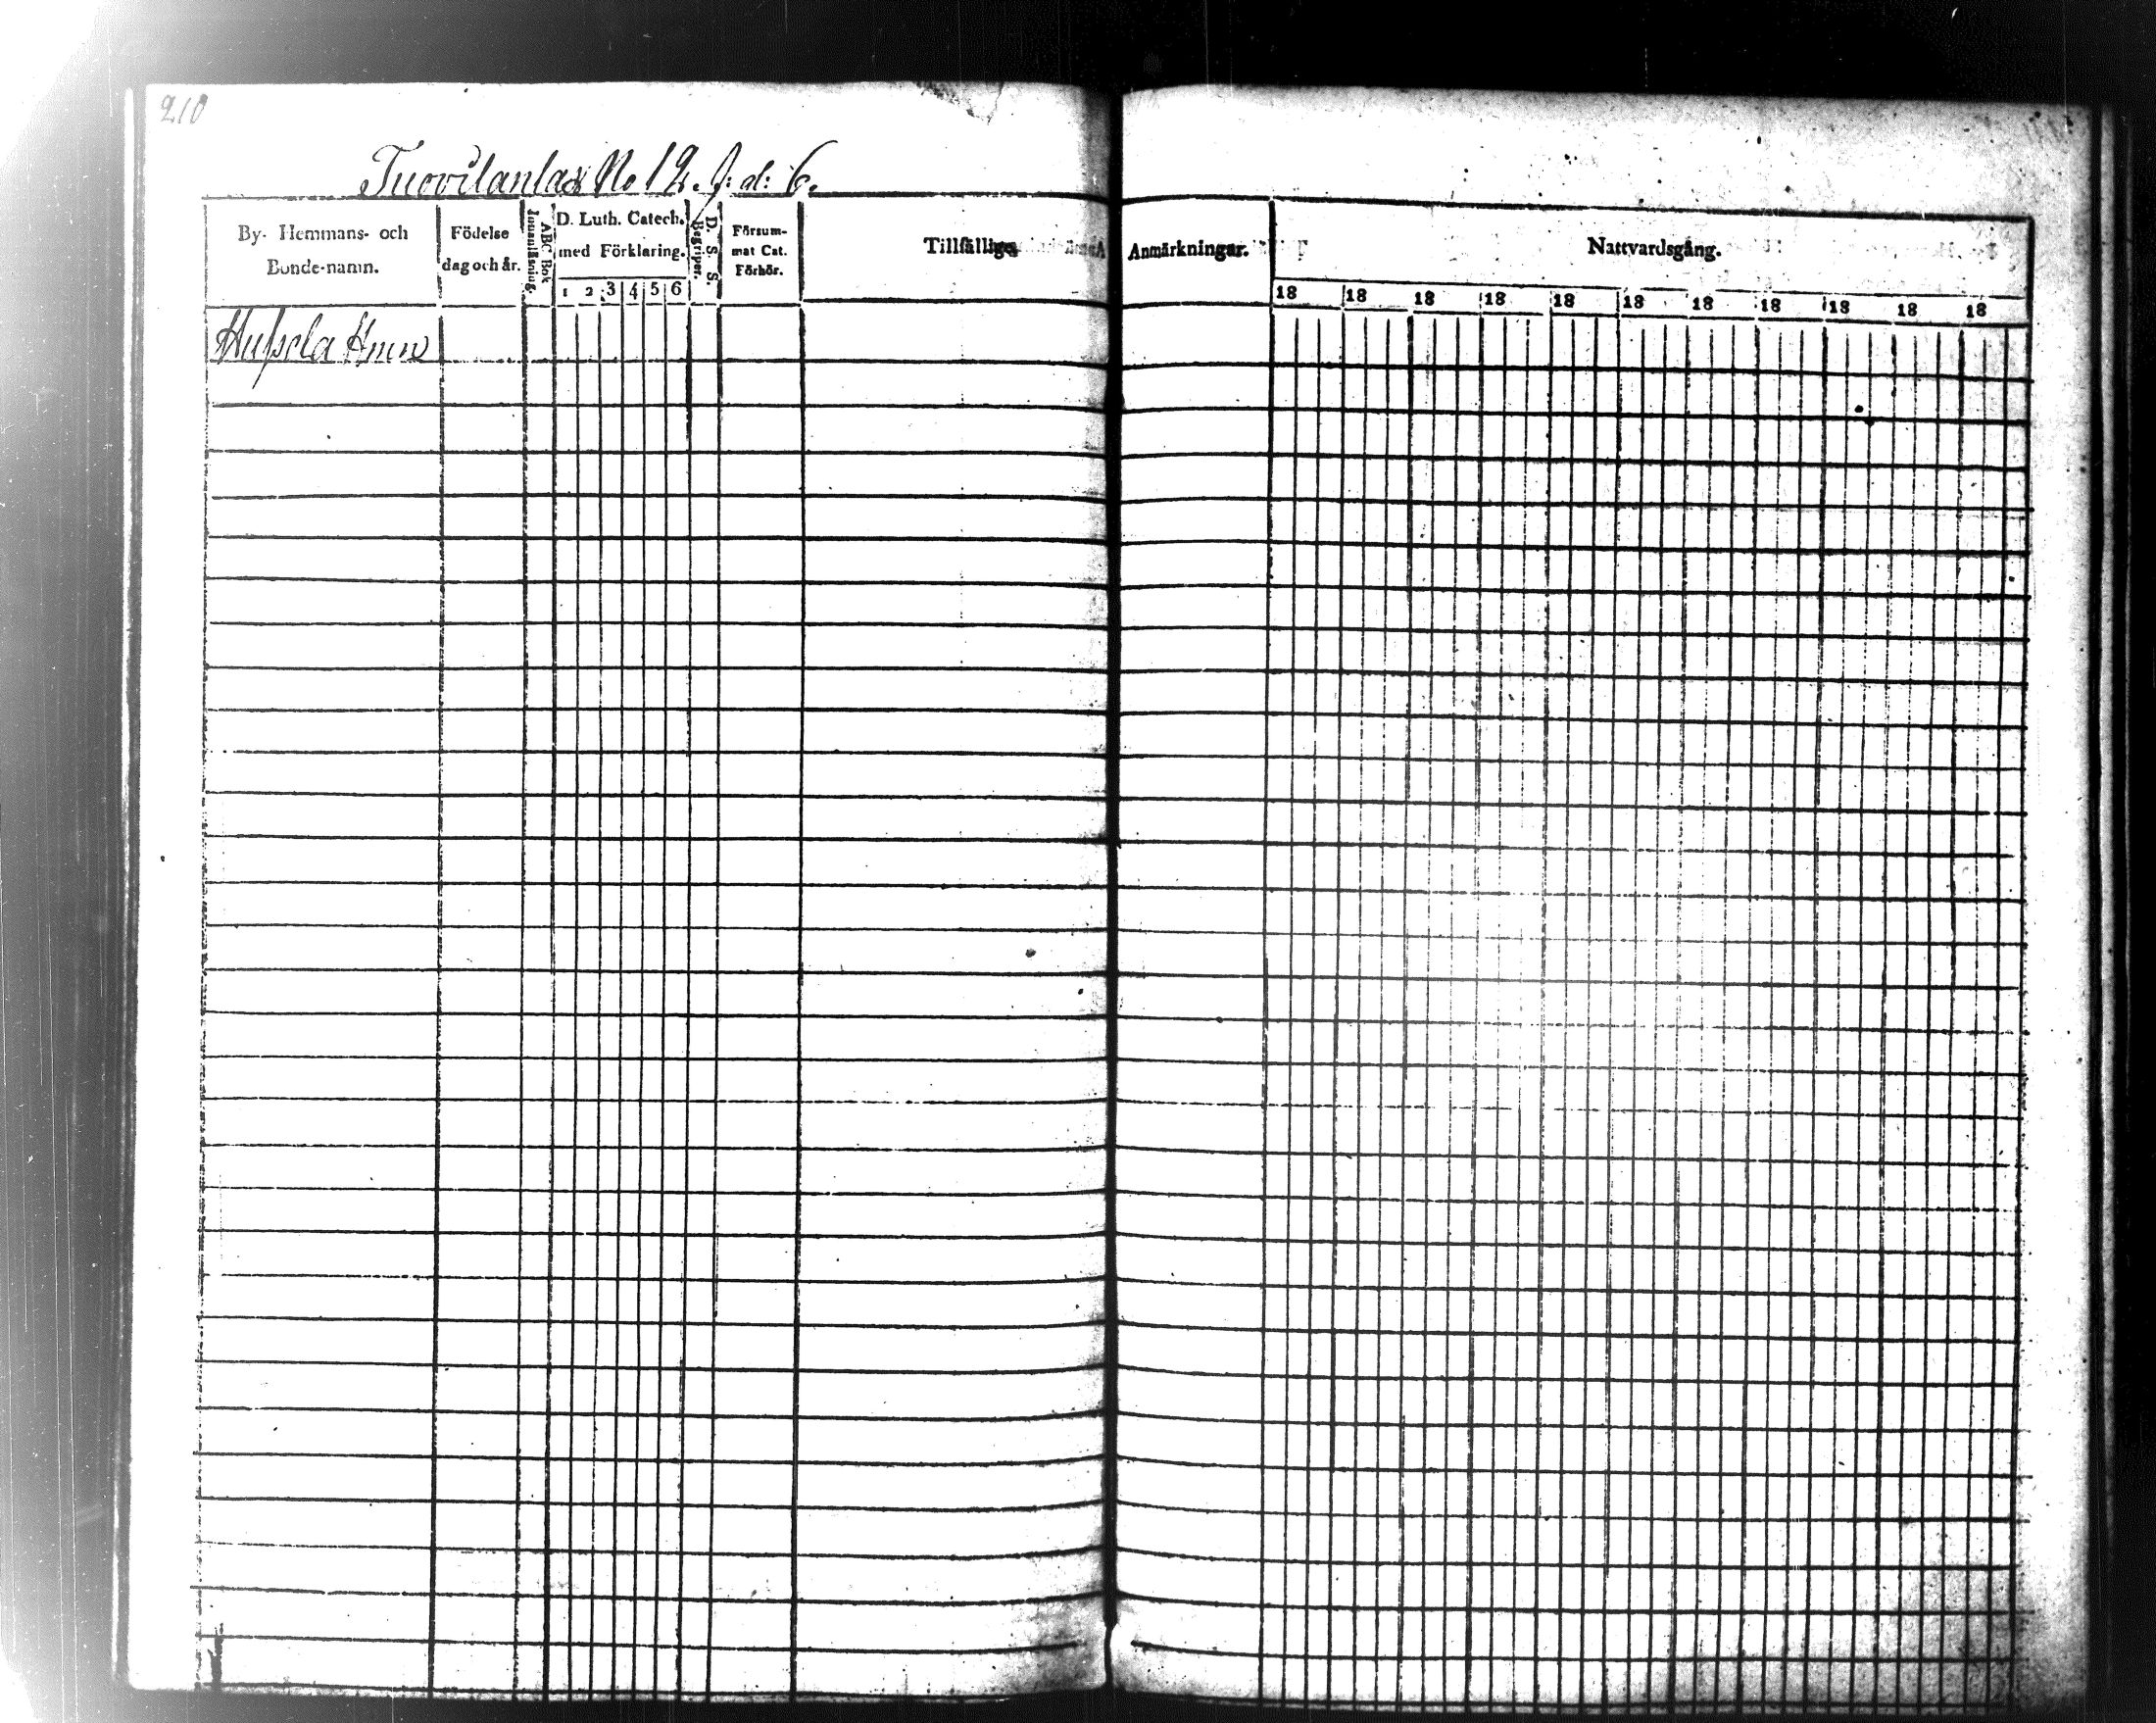 210
Tuovilanlax No 12. J: al: 6.
By- Hemmans- och
Bonde-namn.
Födelse
dag och år.
ABC Bok
Innanläsning.
D. Luth. Catech.
med Förklaring.
1 2 3 4 5 6
D. S. S.
Begriper.
Försum-
mat Cat.
Förhör.
Tillfällige
Anmärkningar.
Nattvardsgång.
18 18 18 18 18 18 18 18 18 18 18